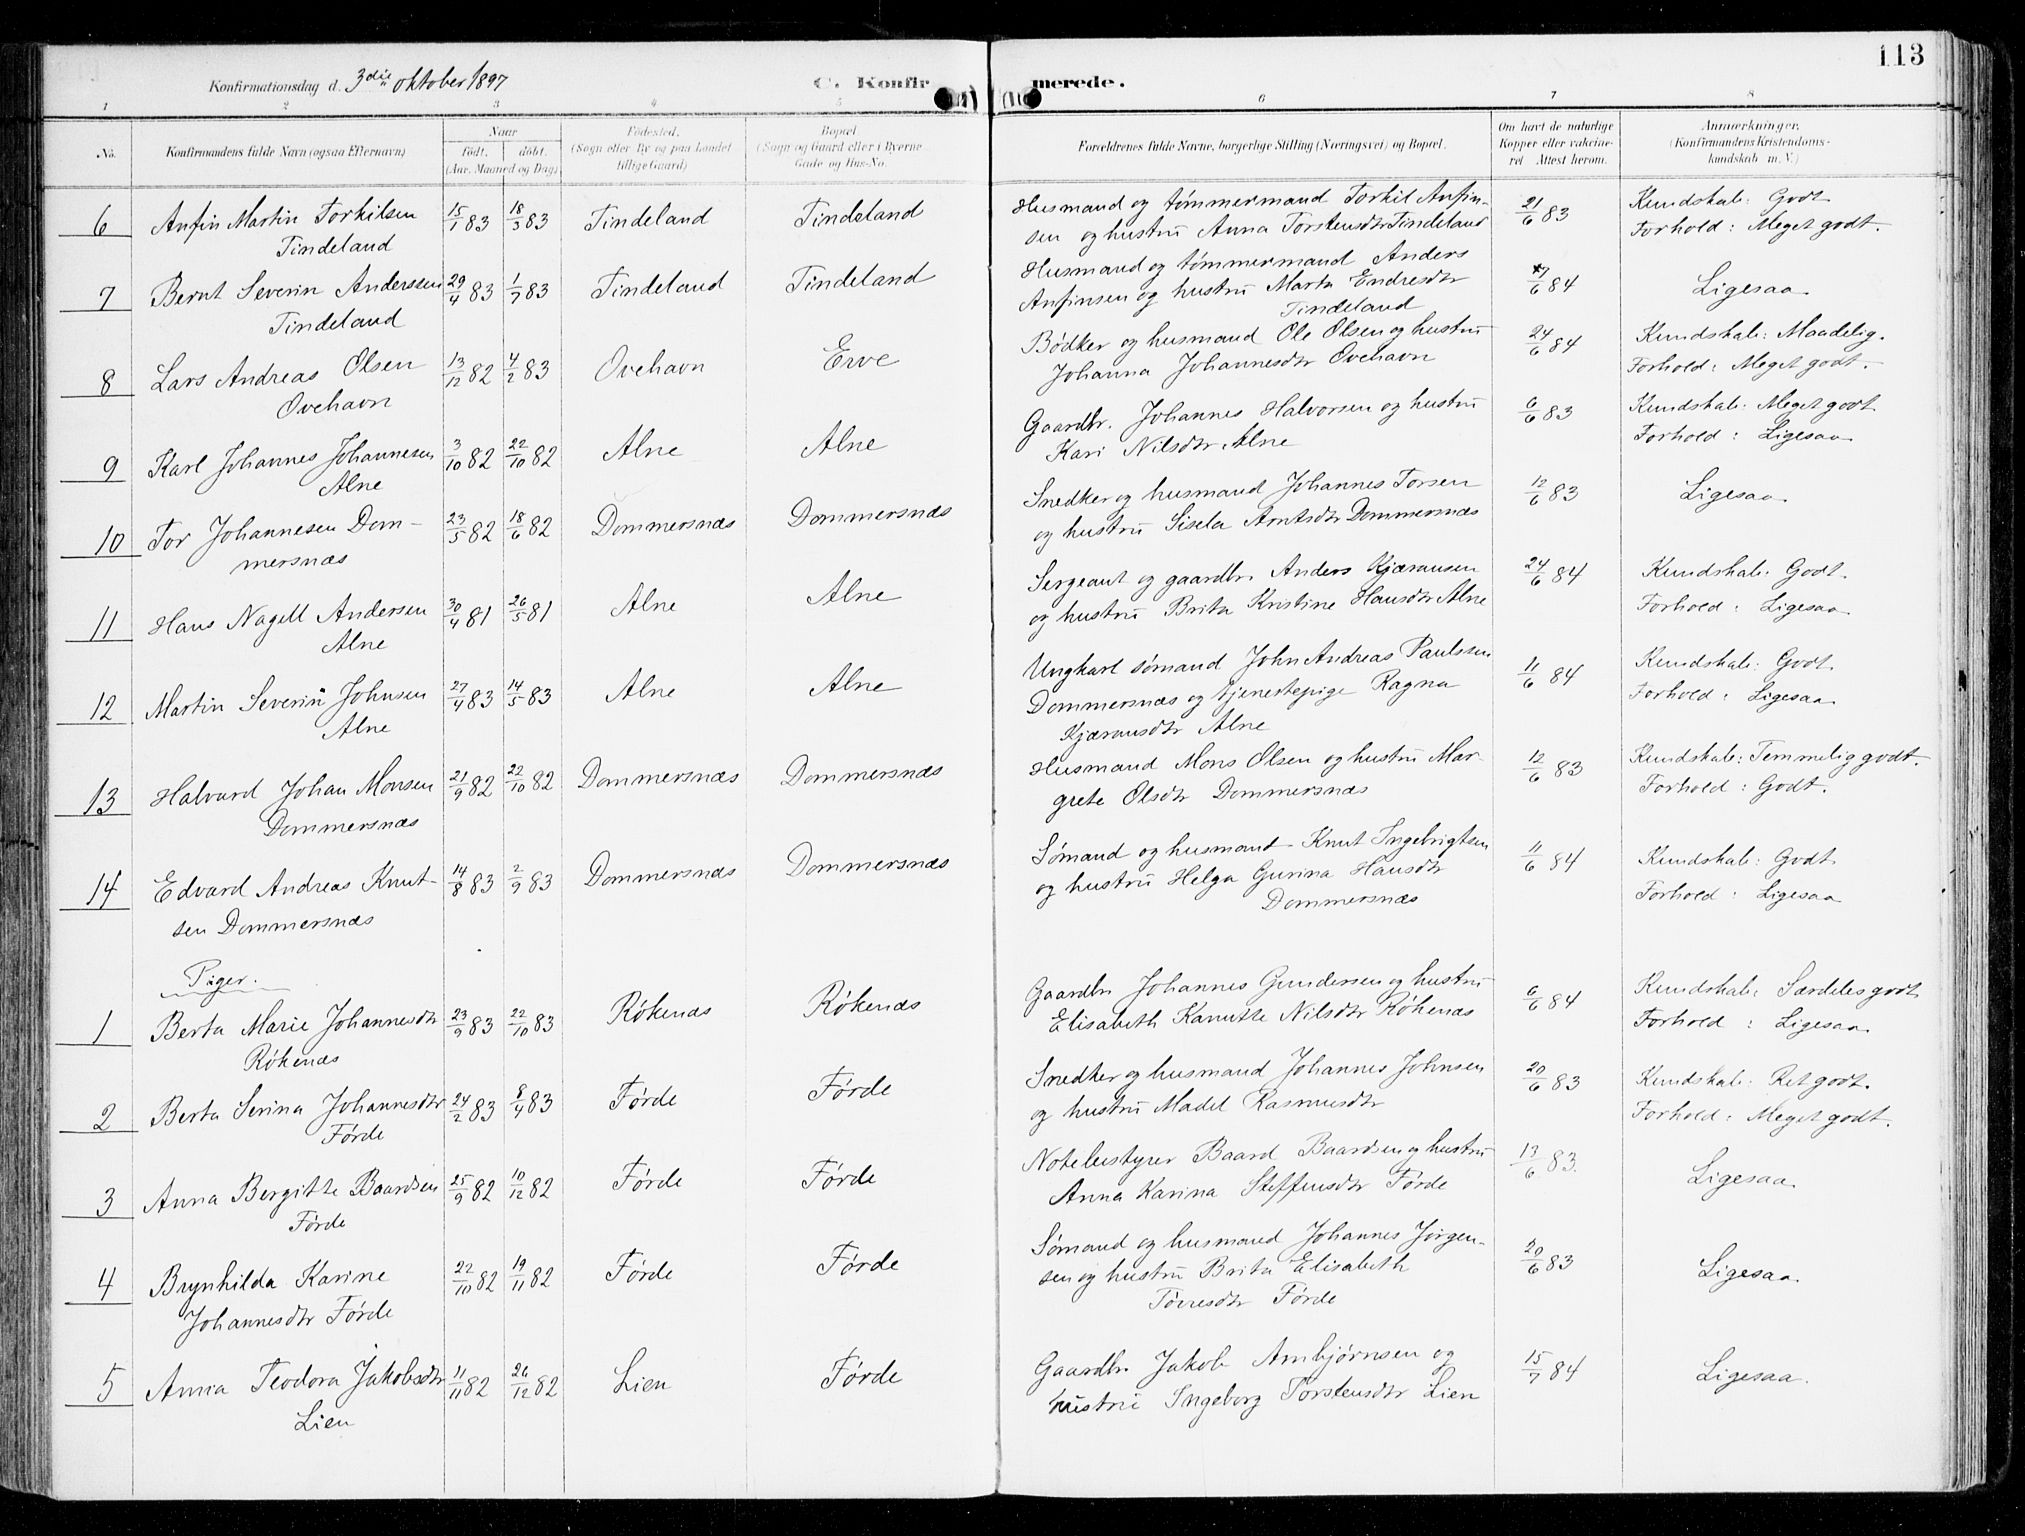 113
Konfirmationsdag d. 3die oktober 1897
C. Konfirmerede.
1 2 3 4 5 6 7 8
No.
Konfirmandens fulde Navn (ogsaa Efternavn)
Naar
født, døbt,
(Aar, Maaned og Dag)
Fødested,
(Sogn eller By og paa Landet
tillige Gaard)
Bopæl
(Sogn og Gaard eller i Byerne
Gade og Hus-No.
Forældrenes fulde Navne, borgerlige Stilling (Næringsvei) og Bopæl.
Om havt de naturlige
Kopper eller vakcine-
ret. Attest herom.
Anmærkninger.
(Konfirmandens Kristendoms-
kundskab m. V.)
6 Anfin Martin Torkilsen
Tindeland
15/1 83 18/3 83 Tindeland Tindeland
Husmand og tømmermand Torkil Anfin-
sen og hustru Anna Torstensdtr Tindeland
21/6 83
Kundskab: Godt
Forhold: Meget godt.
7 Bernt Severin Anderssen
Tindeland
29/4 83 1/7 83 Tindeland Tindeland
Husmand og tømmermand Anders
Anfinsen og hustru Marta Endresdtr
Tindeland
7/6 84
Ligesaa.
8 Lars Andreas Olsen
Ovehavn
13/12 82 4/2 83 Ovehavn Erve
Bødker og husmand Ole Olsen og hustru
Johanna Johannesdtr Ovehavn
24/6 84
Kundskab: Maadelig.
Forhold: Meget godt.
9 Karl Johannes Johannesen
Alne
3/10 82 22/10 82 Alne Alne
Gaardbr. Johannes Halvorsen og hustru
Kari Nilsdtr Alne
6/6 83
Kundskab: Meget godt
Forhold: Ligesaa
10 Tor Johannesen Dom-
mersnæs
23/5 82 18/6 82 Dommersnæs Dommersnæs
Snedker og husmand Johannes Torsen
og hustru Sisela Arntsdtr Dommersnæs
12/6 83
Ligesaa.
11 Hans Nagell Andersen
Alne
30/4 81 26/5 81 Alne Alne
Sergeant og gaardbr. Anders Kjæransen
og hustru Brita Kristine Hansdtr Alne
24/6 84
Kundskab: Godt.
Forhold: Ligesaa
12 Martin Severin Johnsen
Alne
27/4 83 14/5 83 Alne Alne
Ungkarl sømand John Andreas Paulssen
Dommersnæs og tjenestepige Ragna
Kjæransdtr Alne
11/6 84
Kundskab: Godt.
Forhold: Ligesaa
13 Halvard Johan Monsen
Dommersnæs
21/9 82 22/10 82 Dommersnæs Dommersnæs
Husmand Mons Olsen og hustru Mar-
grete Olsdtr Dommersnæs
12/6 83
Kundskab: Temmelig godt.
Forhold: Godt.
14 Edvard Andreas Knut-
sen Dommersnæs
14/8 83 2/9 83 Dommersnæs Dommersnæs
Sømand og husmand Knut Ingebrigtsen
og hustru Helga Gurina Hansdtr
Dommersnæs
11/6 84
Kundskab: Godt
Forhold: Ligesaa
Piger.
1 Berta Marie Johannesdtr
Røkenæs
23/9 83 22/10 83 Røkenæs Røkenæs
Gaardbr. Johannes Gundersen og hustru
Elisabeth Kanutte Nilsdtr Røkenæs
6/6 84
Kundskab: Særdeles godt
Forhold: Ligesaa
2 Berta Serina Johannesdtr
Førde
24/2 83 8/4 83 Førde Førde
Snedker og husmand Johannes Johnsen
og hustru Madel Rasmusdtr
20/6 83
Kundskab: Ret godt.
Forhold: Meget godt.
3 Anna Bergitte Baardsen
Førde
25/9 82 10/12 82 Førde Førde
Notebestyrer Baard Baardsen og hustru
Anna Karina Steffensdtr Førde
13/6 83.
Ligesaa.
4 Brynhilda Karine
Johannesdtr Førde
22/10 82 19/11 82 Førde Førde
Sømand og husmand Johannes Jørgen-
sen og hustru Brita Elisabeth
Tørresdtr Førde
20/6 83
Ligesaa.
5 Anna Teodora Jakobsdtr
Lien
11/11 82 26/12 82 Lien Førde
Gaardbr. Jakob Arnbjørnsen og
hustru Ingeborg Torstensdtr Lien
15/7 84
Ligesaa.